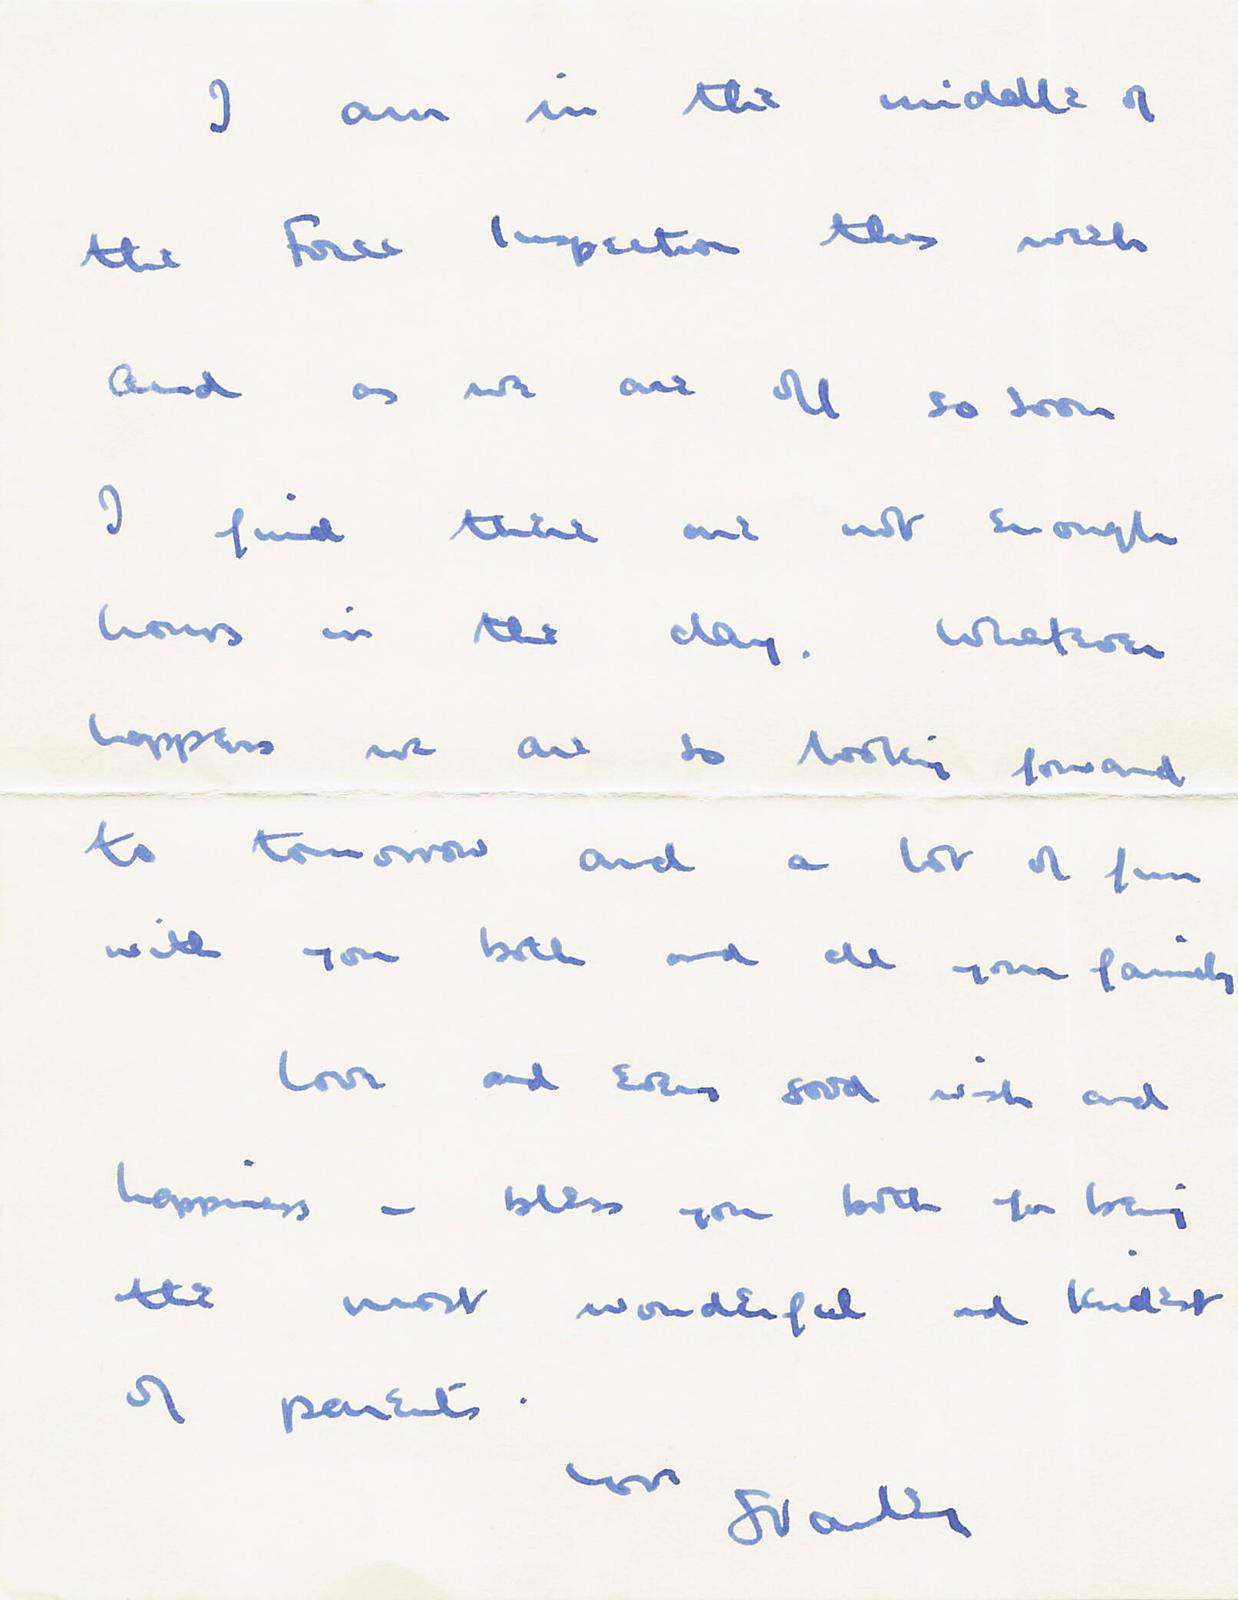 I am in the middle of
the Force Inspection this week
and as we are off so soon
I find there are not enough
hours in the day. Whatever
happens we are so looking forward
to tomorrow and a lot of fun
with you both and all your family
Love and every good wish and
happiness - bless you both for being
the most wonderful and kindest
of parents.
Love Stanley